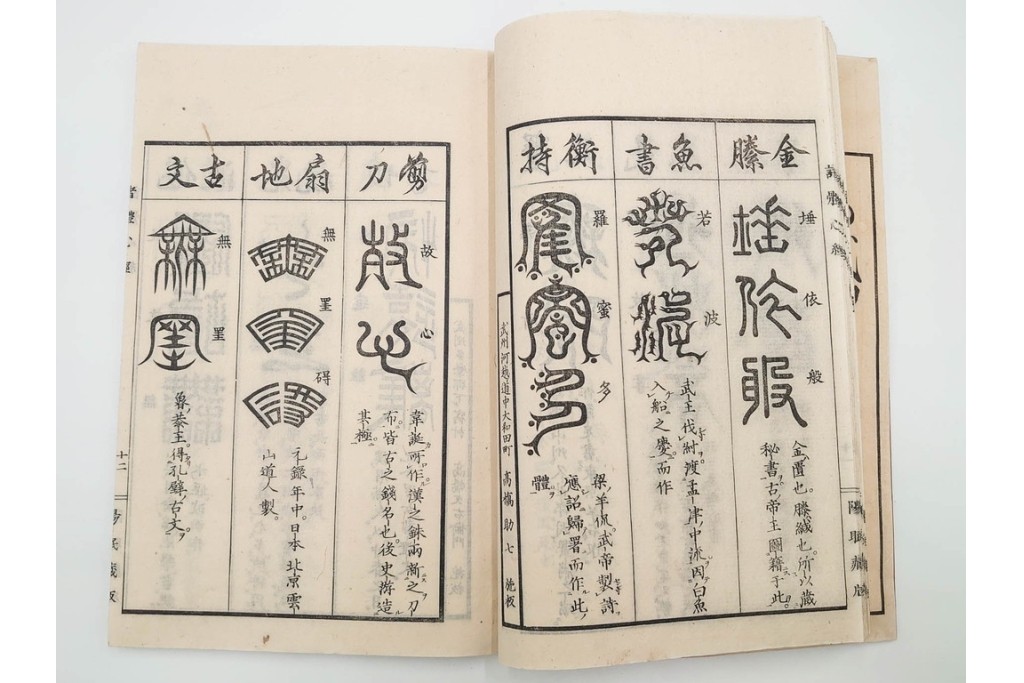 金縢
埵
依
般
金匱也。縢緘也。所以藏
秘書。古帝王圖籍于此。
魚書
若
波
武王伐紂。渡孟津。中流因白魚
入船之慶。而作
衡持
羅
蜜
多
梁羊侃。武帝製詩
應詔歸署而作此
體
武州河越道中大和田町 高橋助七
剪刀
故
心
韋誕所作。漢之銖兩漸之刀
布。皆古之錢名也。後史游造
其極。
扇地
無
罣
碍
元録年中。日本北京雲
山道人製。
古文
無
罣
魯恭王。得孔壁古文。
十二